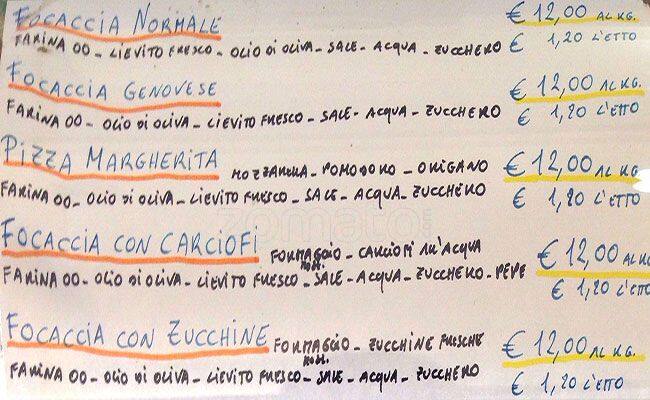 FOCACCIA NORMALE € 12,00 AL KG.
FARINA 00 - LIEVITO FRESCO - OLIO DI OLIVA - SALE - ACQUA - ZUCCHERO € 1,20 L'ETTO
FOCACCIA GENOVESE € 12,00 AL KG.
FARINA 00 - OLIO DI OLIVA - LIEVITO FRESCO - SALE - ACQUA - ZUCCHERO € 1,20 L'ETTO
PIZZA MARGHERITA MOZZARELLA - POMODORO - ORIGANO € 12,00 AL KG.
FARINA 00 - OLIO DI OLIVA - LIEVITO FRESCO - SALE - ACQUA - ZUCCHERO € 1,20 L'ETTO
zomato
FOCACCIA CON CARCIOFI FORMAGGIO - CARCIOFI ALL'ACQUA € 12,00 AL KG
FARINA 00 - OLIO DI OLIVA - LIEVITO FRESCO - SALE - ACQUA - ZUCCHERO - PEPE € 1,20 L'ETTO
FOCACCIA CON ZUCCHINE FORMAGGIO - ZUCCHINE FRESCHE € 12,00 AL KG.
FARINA 00 - OLIO DI OLIVA - LIEVITO FRESCO - SALE - ACQUA - ZUCCHERO € 1,20 L'ETTO